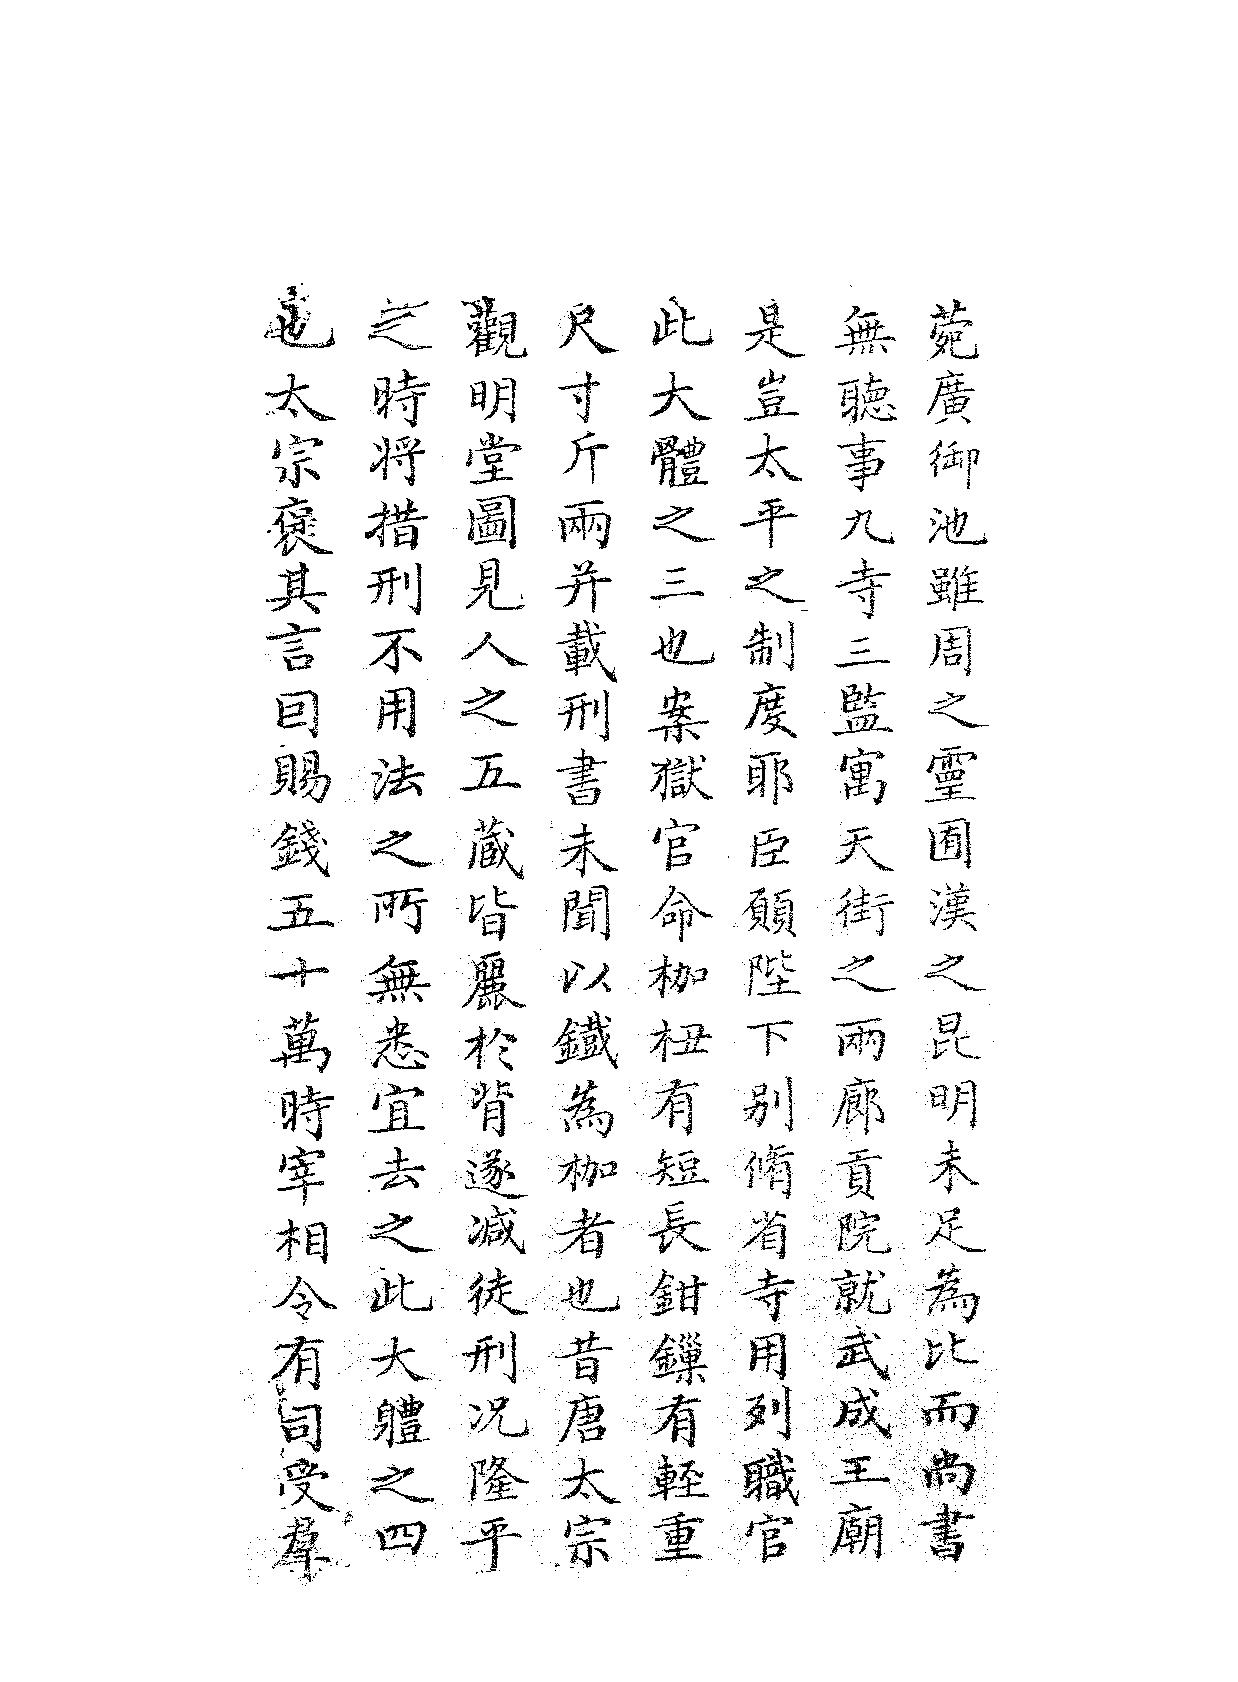 菀廣御池雖周之靈囿漢之昆明未足為比而尚書
無聽事九寺三監寓天街之兩廊貢院就武成王廟
是豈太平之制度耶臣願陛下别脩省寺用列職官
此大體之三也案獄官命枷杻有短長鉗鏁有輕重
尺寸斤兩并載刑書未聞以鐵為枷者也昔唐太宗
觀明堂圖見人之五蔵皆麗於背遂减徒刑况隆平
之時将措刑不用法之所無悉宜去之此大體之四
也太宗褒其言曰賜錢五十萬時宰相令有司受羣